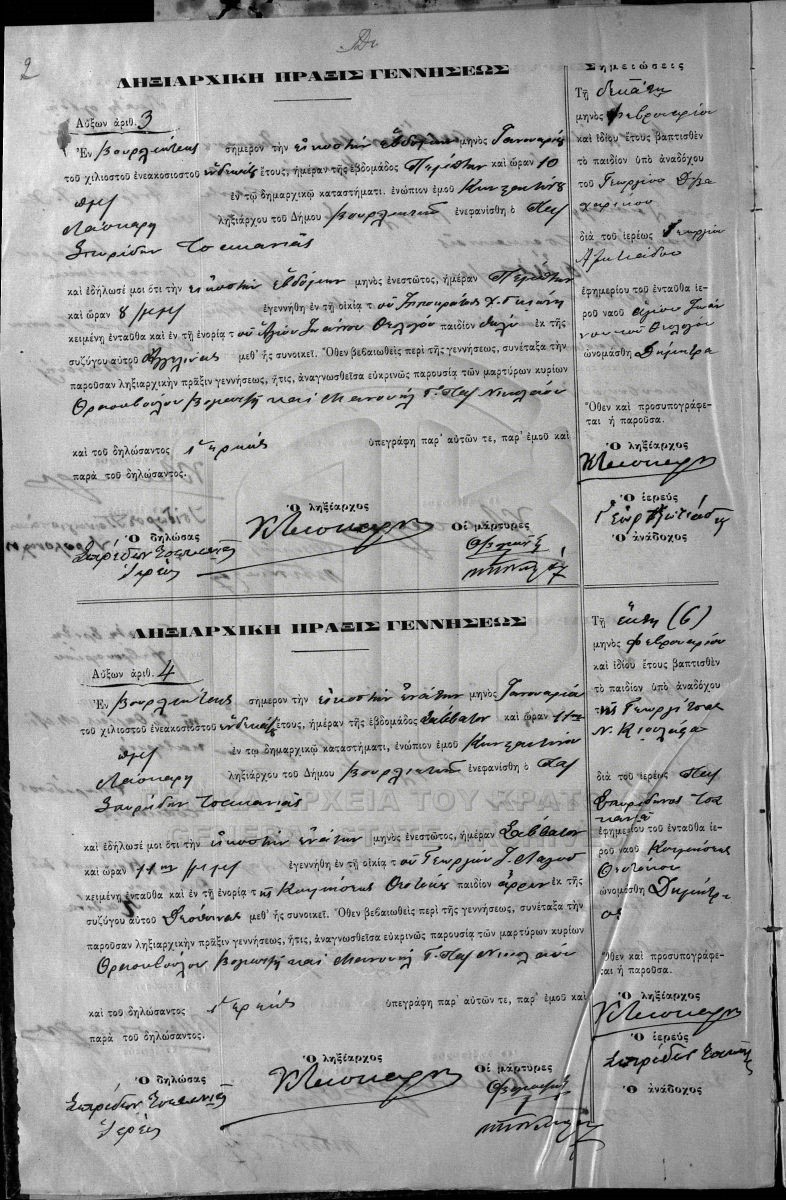 2
ΛΗΞΙΑΡΧΙΚΗ ΠΡΑΞΙΣ ΓΕΝΝΗΣΕΩΣ
Αὔξων ἀριθ. 3
Ἐν Βουρλιώταις σήμερον τὴν εἰκοστὴν ἑβδόμην μηνὸς Ἰανουαρίου
τοῦ χιλιοστοῦ ἐνεακοσιοστοῦ ἑνδεκάτου ἔτους, ἡμέραν τῆς ἑβδομάδος Πέμπτην καὶ ὥραν 10
πμμ ἐν τῷ δημαρχικῷ καταστήματι, ἐνώπιον ἐμοῦ Κωνσταντίνου
Λάσκαρη ληξιάρχου τοῦ Δήμου Βουρλιωτῶν ἐνεφανίσθη ὁ Παπ
Σπυρίδων Τσακανιᾶς
καὶ ἐδήλωσέ μοι ὅτι τὴν εἰκοστὴν ἑβδόμην μηνὸς ἐνεστῶτος, ἡμέραν Πέμπτην
καὶ ὥραν 8 μμμ ἐγεννήθη ἐν τῇ οἰκίᾳ τοῦ Ἱπποκράτους Χ.
κειμένῃ ἐνταῦθα καὶ ἐν τῇ ἐνορίᾳ τοῦ Ἁγίου Ἰωάννου Θεολόγου παιδίον θῆλυ ἐκ τῆς
συζύγου αὐτοῦ Ἀγγελίνας μεθ' ἧς συνοικεῖ. Ὅθεν βεβαιωθεὶς περὶ τῆς γεννήσεως, συνέταξα τὴν
παροῦσαν ληξιαρχικὴν πρᾶξιν γεννήσεως, ἥτις, ἀναγνωσθεῖσα εὐκρινῶς παρουσίᾳ τῶν μαρτύρων κυρίων
Θρασυβούλου καὶ Μανουὴλ Γ. Παπ Νικολάου
καὶ τοῦ δηλώσαντος ἱερέως ὑπεγράφη παρ' αὐτῶν τε, παρ' ἐμοῦ καὶ
παρὰ τοῦ δηλώσαντος.
Ὁ ληξίαρχος
Ὁ δηλώσας Κ Λάσκαρης Οἱ μάρτυρες
Σπυρίδων Τσακανιᾶς
Ἱερεύς
Σημειώσεις
Τῇ δεκάτῃ
μηνὸς Φεβρουαρίου
καὶ ἰδίου ἔτους βαπτισθὲν
τὸ παιδίον ὑπὸ ἀναδόχου
τοῦ Γεωργίου
διὰ τοῦ ἱερέως Γεωργίου
ἐφημερίου τοῦ ἐνταῦθα ἱε-
ροῦ ναοῦ Ἁγίου Ἰωάν
νου τοῦ Θεολόγου
ὠνομάσθη Δήμητρα
Ὅθεν καὶ προσυπογράφε-
ται ἡ παροῦσα.
Ὁ ληξίαρχος
Κ Λάσκαρης
Ὁ ἱερεύς
Ὁ ἀνάδοχος
ΛΗΞΙΑΡΧΙΚΗ ΠΡΑΞΙΣ ΓΕΝΝΗΣΕΩΣ
Αὔξων ἀριθ. 4
Ἐν Βουρλιώταις σήμερον τὴν εἰκοστὴν ἐνάτην μηνὸς Ἰανουαρίου
τοῦ χιλιοστοῦ ἐνεακοσιοστοῦ ἑνδεκάτου ἔτους, ἡμέραν τῆς ἑβδομάδος Σάββατον καὶ ὥραν 11ην
πμμ ἐν τῷ δημαρχικῷ καταστήματι, ἐνώπιον ἐμοῦ Κωνσταντίνου
Λάσκαρη ληξιάρχου τοῦ Δήμου Βουρλιωτῶν ἐνεφανίσθη ὁ Παπ
Σπυρίδων Τσακανιᾶς
καὶ ἐδήλωσέ μοι ὅτι τὴν εἰκοστὴν ἐνάτην μηνὸς ἐνεστῶτος, ἡμέραν Σάββατον
καὶ ὥραν 11ην μμμ ἐγεννήθη ἐν τῇ οἰκίᾳ τοῦ Γεωργίου
κειμένῃ ἐνταῦθα καὶ ἐν τῇ ἐνορίᾳ τῆς Κοιμήσεως Θεοτόκου παιδίον ἄρρεν ἐκ τῆς
συζύγου αὐτοῦ Δεσποίνας μεθ' ἧς συνοικεῖ. Ὅθεν βεβαιωθεὶς περὶ τῆς γεννήσεως, συνέταξα τὴν
παροῦσαν ληξιαρχικὴν πρᾶξιν γεννήσεως, ἥτις, ἀναγνωσθεῖσα εὐκρινῶς παρουσίᾳ τῶν μαρτύρων κυρίων
Θρασυβούλου καὶ Μανουὴλ Γ. Παπ Νικολάου
καὶ τοῦ δηλώσαντος ἱερέως ὑπεγράφη παρ' αὐτῶν τε, παρ' ἐμοῦ καὶ
παρὰ τοῦ δηλώσαντος.
Ὁ ληξίαρχος
Ὁ δηλώσας Κ Λάσκαρης Οἱ μάρτυρες
Σπυρίδων Τσακανιᾶς
Ἱερεύς
Τῇ ἕκτῃ (6)
μηνὸς Φεβρουαρίου
καὶ ἰδίου ἔτους βαπτισθὲν
τὸ παιδίον ὑπὸ ἀναδόχου
τῆς Γεωργίτσας
Ν.
διὰ τοῦ ἱερέως Παπ
Σπυρίδωνος Τσα
κανιᾶ
ἐφημερίου τοῦ ἐνταῦθα ἱε-
ροῦ ναοῦ Κοιμήσεως
Θεοτόκου
ὠνομάσθη Δημήτρι-
ος
Ὅθεν καὶ προσυπογράφε-
ται ἡ παροῦσα.
Ὁ ληξίαρχος
Κ Λάσκαρης
Ὁ ἱερεύς
Σπυρίδων Τσακανιᾶς
Ὁ ἀνάδοχος
ΓΕΝΙΚΑ ΑΡΧΕΙΑ ΤΟΥ ΚΡΑΤΟΥΣ